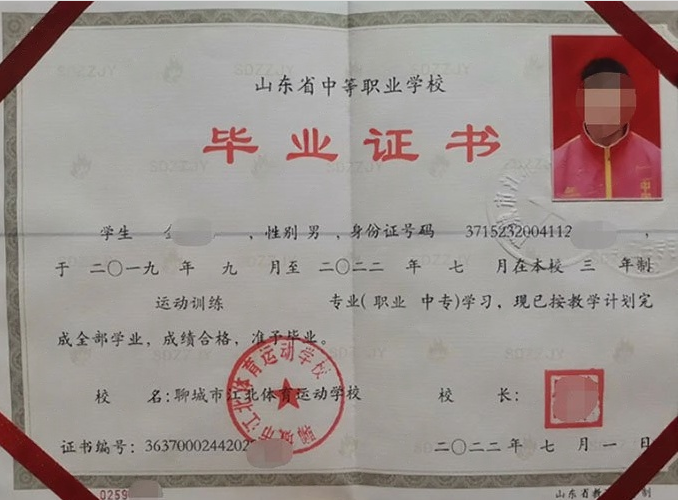 山东省中等职业学校
毕业证书
学生 ，性别 男 ，身份证号码 3715232004112 ，
于 二〇一九 年 九 月至 二〇二二 年 七 月在本校 三 年制
运动训练 专业( 职业 中专)学习，现已按教学计划完
成全部学业，成绩合格，准予毕业。
校 名:聊城市江北体育运动学校 校 长:
证书编号: 3637000244202 二〇二二 年 七 月 一 日
0259 山东省教 制
SDZZJY
市江北体育运动学校